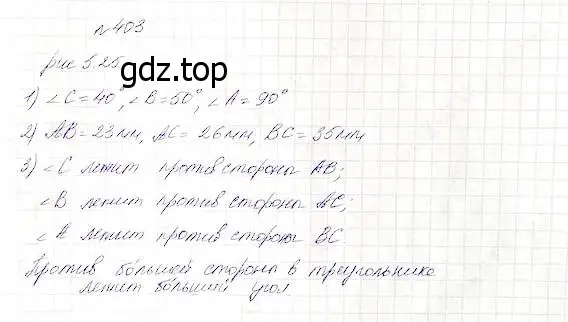 №403
рис 5.25
gdz.top
1) ∠C=40°, ∠B=50°, ∠A=90°
2) AB=23мм, AC=26мм, BC=35мм
3) ∠C лежит против стороны AB;
∠B лежит против стороны AC;
∠A лежит против стороны BC
Против большей стороны в треугольнике
лежит больший угол